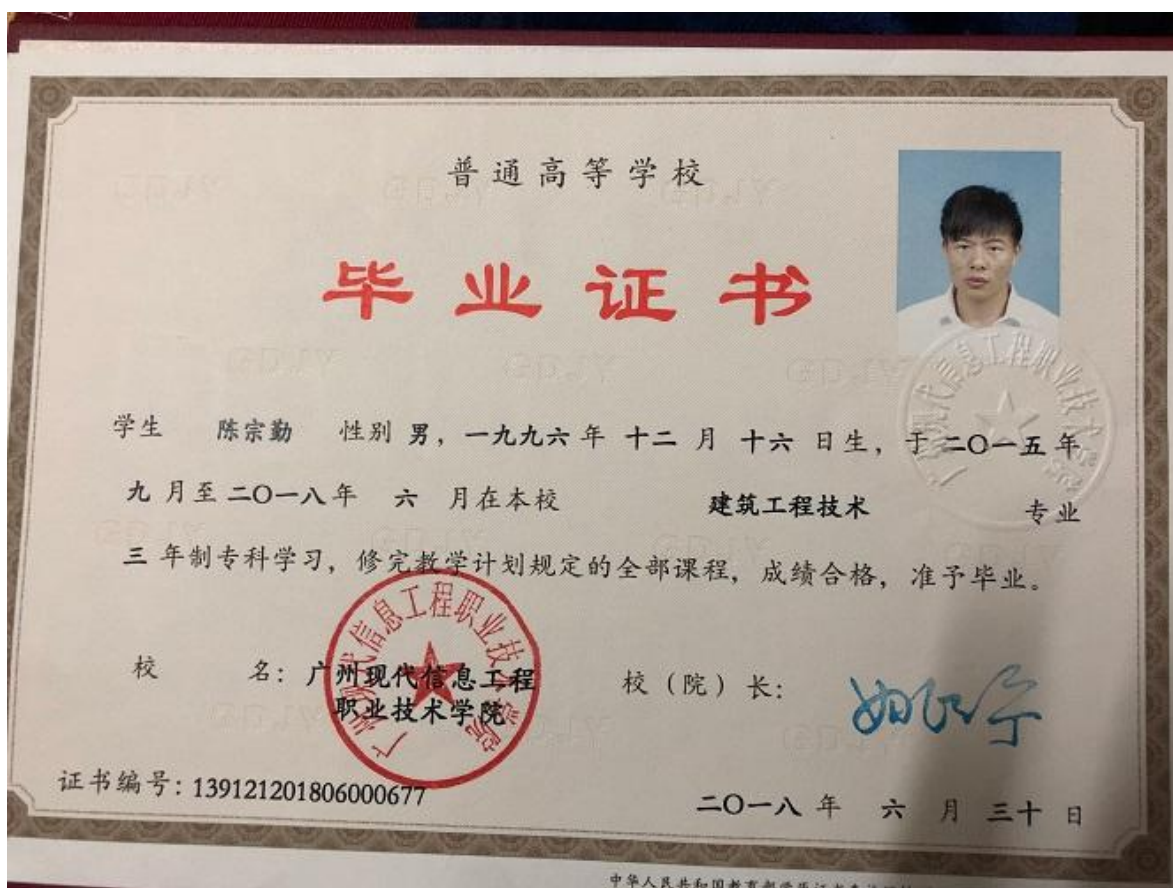 普通高等学校
毕业证书
学生 陈宗勤 性别 男，一九九六年 十二 月 十六 日生，于二〇一五年
九 月至二〇一八年 六 月在本校 建筑工程技术 专业
三 年制专科学习，修完教学计划规定的全部课程，成绩合格，准予毕业。
校 名：广州现代信息工程
职业技术学院
校（院）长：
证书编号：139121201806000677
二〇一八 年 六 月 三十 日
广州现代信息工程职业技术学院
广州现代信息工程职业技术学院